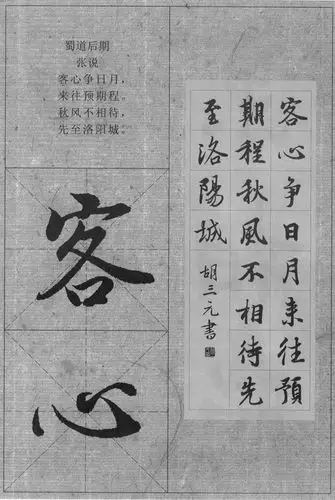 蜀道后期
张说
客心争日月，
来往预期程。
秋风不相待，
先至洛阳城。
客
心
客心争日月来往預
期程秋風不相待先
至洛陽城
胡三元書